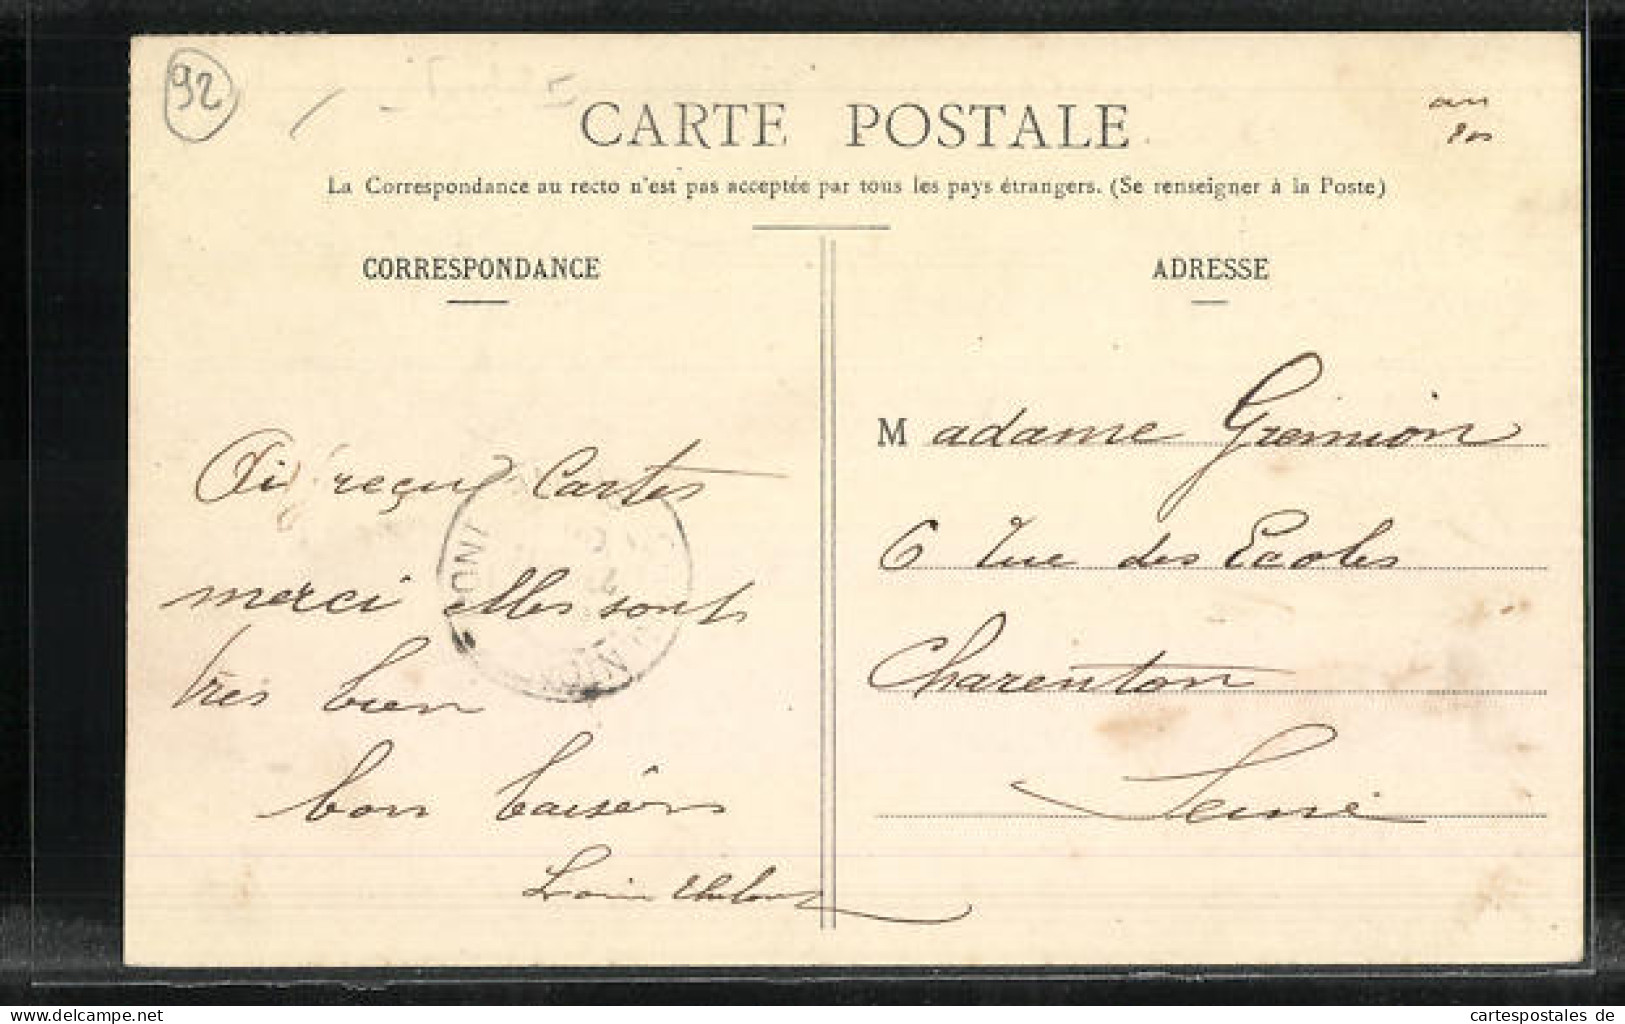 92
CARTE POSTALE
La Correspondance au recto n'est pas acceptée par tous les pays étrangers. (Se renseigner à la Poste)
CORRESPONDANCE
Ai reçu Cartes
merci elles sont
très bien
bon baisers
ADRESSE
Madame Gremion
6 rue des Ecoles
Charenton
Seine
www.delcampe.net
cartespostales de